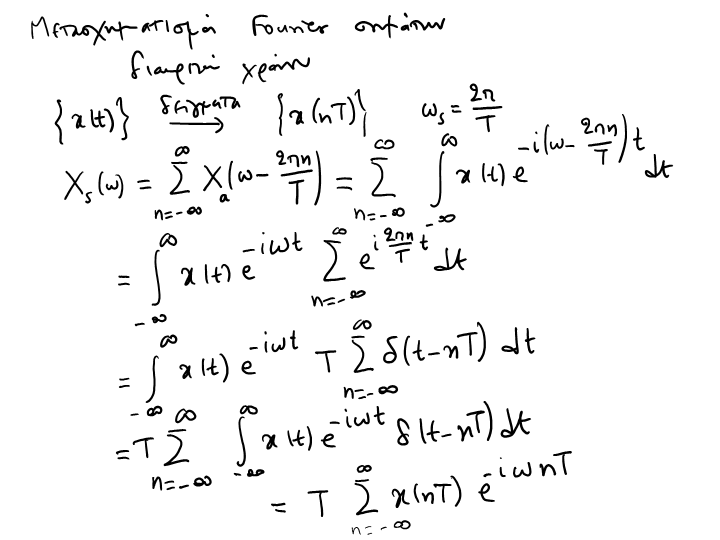 Μετασχηματισμοί Fourier σημάτων
διακριτού χρόνου
{x(t)} δείγματα → {x(nT)} ω_s = 2π/T
X_s(ω) = ∑_{n=-∞}^{∞} X_a(ω - 2πn/T) = ∑_{n=-∞}^{∞} ∫_{-∞}^{∞} x(t) e^{-i(ω - 2πn/T)t} dt
= ∫_{-∞}^{∞} x(t) e^{-iωt} ∑_{n=-∞}^{∞} e^{i 2πn/T t} dt
= ∫_{-∞}^{∞} x(t) e^{-iωt} T ∑_{n=-∞}^{∞} δ(t-nT) dt
= T ∑_{n=-∞}^{∞} ∫_{-∞}^{∞} x(t) e^{-iωt} δ(t-nT) dt
= T ∑_{n=-∞}^{∞} x(nT) e^{-iωnT}